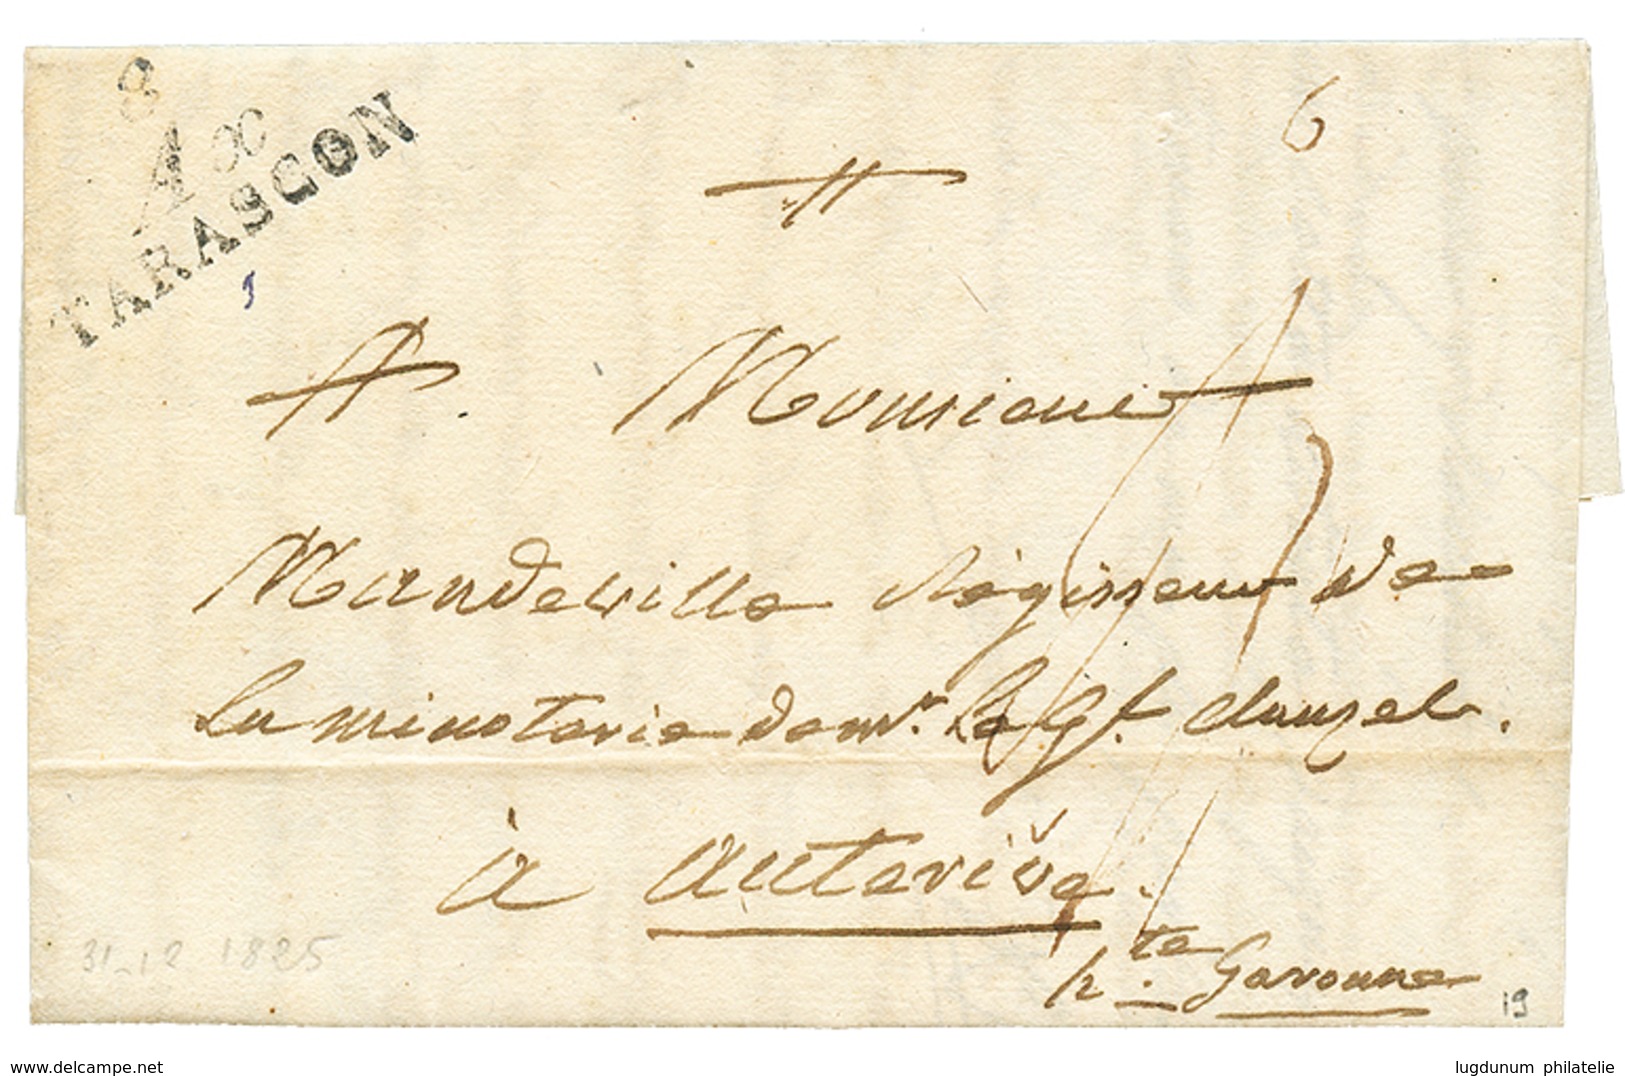 8
A∞
TARASCON
6
Monsieur
Mandeville Régisseur de
la minoterie de mr. Le Gl. clauzel.
à auterive.
hte. Garonne
31-12 1825
19
delcampe.net
lugdunum philatelie